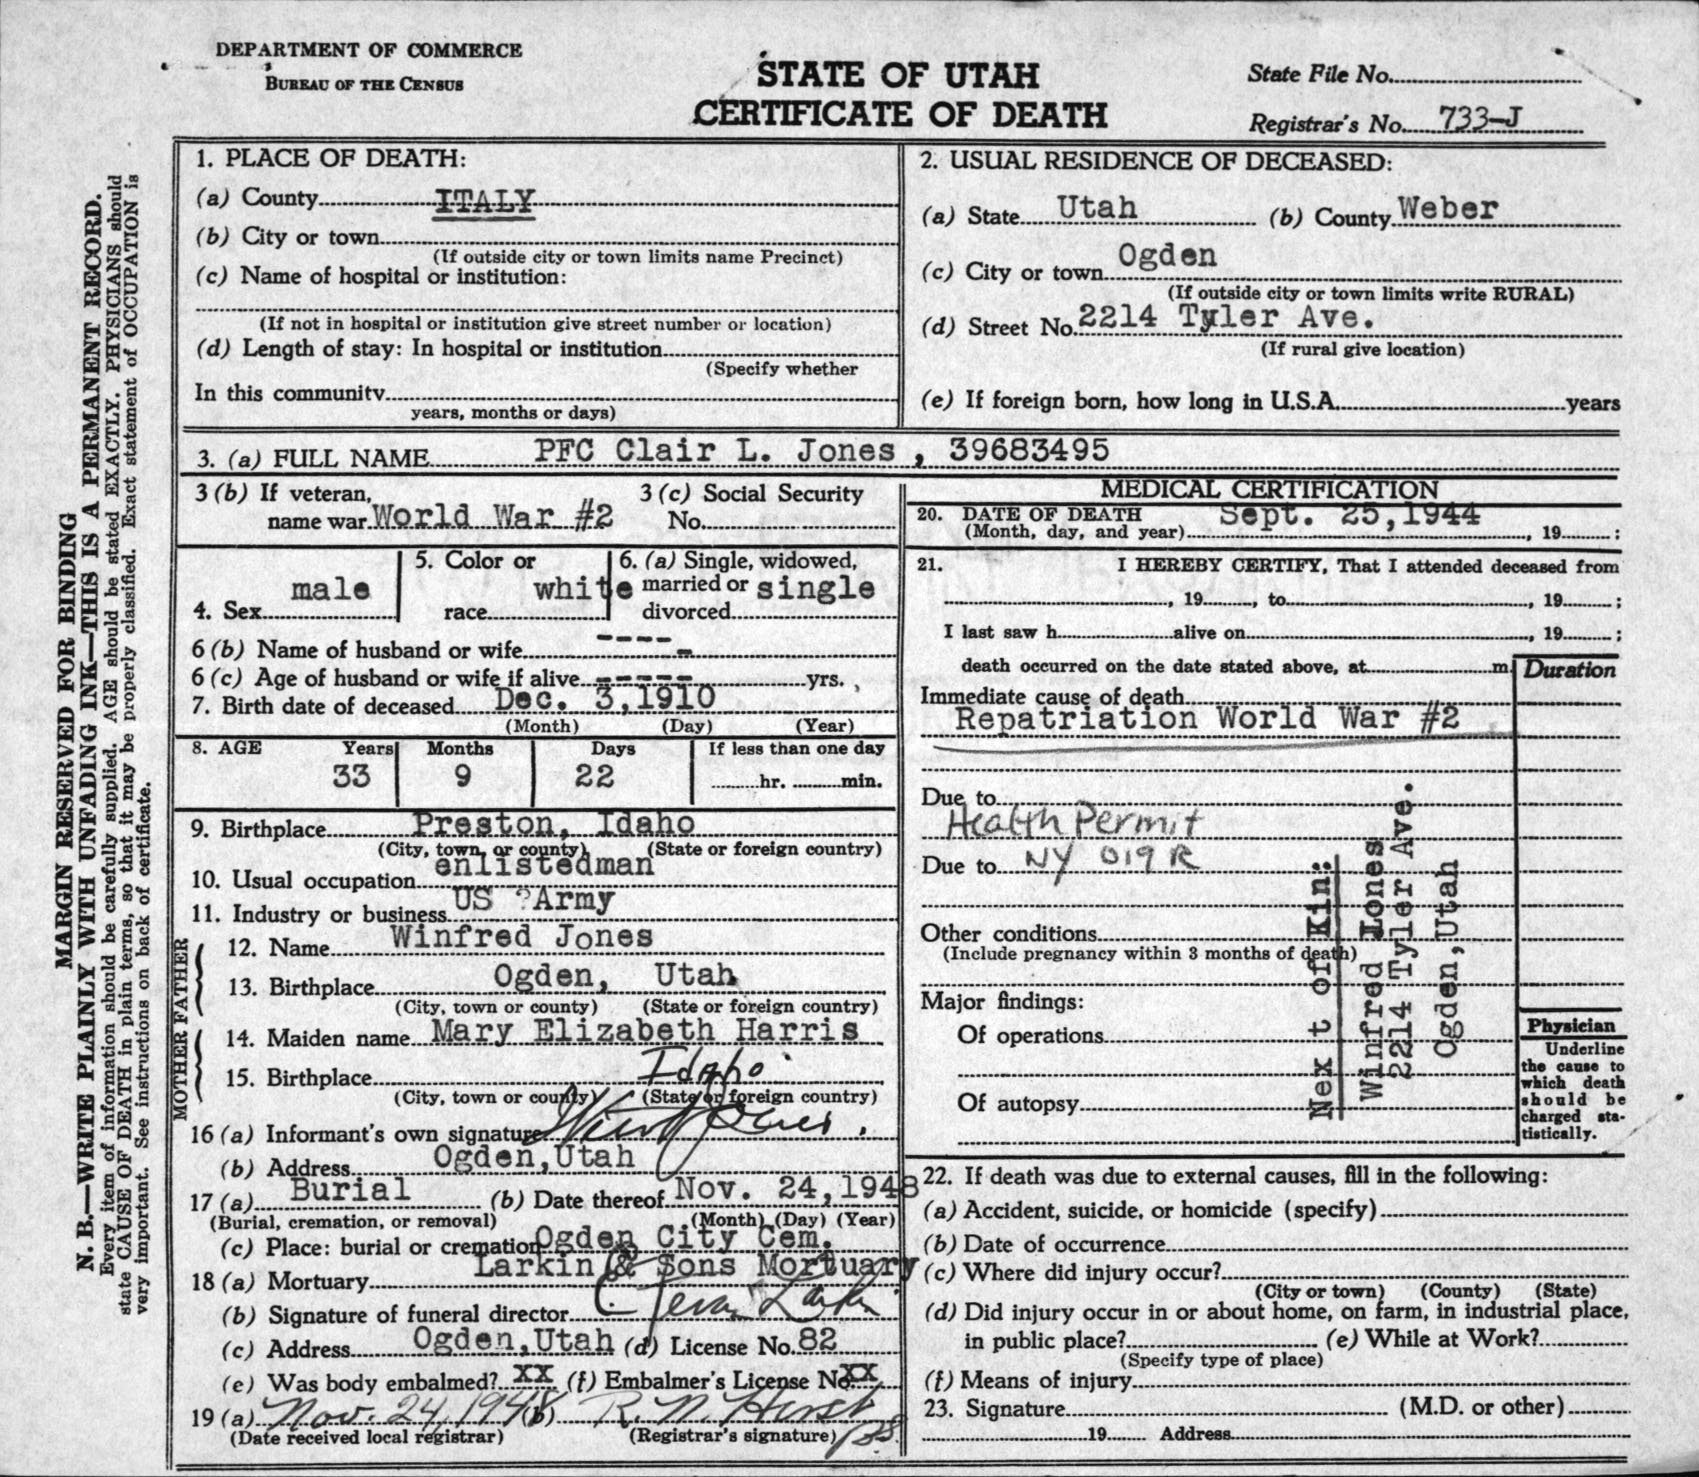 DEPARTMENT OF COMMERCE
BUREAU OF THE CENSUS
STATE OF UTAH
CERTIFICATE OF DEATH
State File No.
Registrar's No. 733-J
MARGIN RESERVED FOR BINDING
N. B.—WRITE PLAINLY WITH UNFADING INK—THIS IS A PERMANENT RECORD.
Every item of information should be carefully supplied. AGE should be stated EXACTLY. PHYSICIANS should
state CAUSE OF DEATH in plain terms, so that it may be properly classified. Exact statement of OCCUPATION is
very important. See instructions on back of certificate.
1. PLACE OF DEATH:
(a) County ITALY
(b) City or town
(If outside city or town limits name Precinct)
(c) Name of hospital or institution:
(If not in hospital or institution give street number or location)
(d) Length of stay: In hospital or institution
(Specify whether
In this community
years, months or days)
2. USUAL RESIDENCE OF DECEASED:
(a) State Utah (b) County Weber
(c) City or town Ogden
(If outside city or town limits write RURAL)
(d) Street No. 2214 Tyler Ave.
(If rural give location)
(e) If foreign born, how long in U.S.A. years
3. (a) FULL NAME PFC Clair L. Jones , 39683495
3 (b) If veteran, 3 (c) Social Security
name war World War #2 No.
4. Sex male
5. Color or
race white
6. (a) Single, widowed,
married or single
divorced
6 (b) Name of husband or wife ---- -
6 (c) Age of husband or wife if alive ----- yrs.
7. Birth date of deceased Dec. 3,1910
(Month) (Day) (Year)
8. AGE Years Months Days If less than one day
33 9 22 hr. min.
9. Birthplace Preston, Idaho
(City, town, or county) (State or foreign country)
10. Usual occupation enlistedman
11. Industry or business US ?Army
FATHER
12. Name Winfred Jones
13. Birthplace Ogden, Utah
(City, town or county) (State or foreign country)
MOTHER
14. Maiden name Mary Elizabeth Harris
15. Birthplace Idaho
(City, town or county) (State or foreign country)
16 (a) Informant's own signature
(b) Address Ogden,Utah
17 (a) Burial (b) Date thereof Nov. 24,1948
(Burial, cremation, or removal) (Month) (Day) (Year)
(c) Place: burial or cremation Ogden City Cem.
18 (a) Mortuary Larkin & Sons Mortuary
(b) Signature of funeral director
(c) Address Ogden,Utah (d) License No. 82
(e) Was body embalmed? XX (f) Embalmer's License No. XX
19 (a) Nov. 24, 1948 (b) R. N. Hirst
(Date received local registrar) (Registrar's signature)
MEDICAL CERTIFICATION
20. DATE OF DEATH Sept. 25,1944
(Month, day, and year) , 19 ;
21. I HEREBY CERTIFY, That I attended deceased from
, 19 , to , 19 ;
I last saw h alive on , 19 ;
death occurred on the date stated above, at m.
Duration
Immediate cause of death
Repatriation World War #2
Due to
Health Permit
Due to NY 019 R
Other conditions
(Include pregnancy within 3 months of death)
Major findings:
Of operations
Of autopsy
Nex t of Kin:
Winfred Jones
2214 Tyler Ave.
Ogden,Utah
Physician
Underline
the cause to
which death
should be
charged sta-
tistically.
22. If death was due to external causes, fill in the following:
(a) Accident, suicide, or homicide (specify)
(b) Date of occurrence
(c) Where did injury occur?
(City or town) (County) (State)
(d) Did injury occur in or about home, on farm, in industrial place,
in public place? (e) While at Work?
(Specify type of place)
(f) Means of injury
23. Signature (M.D. or other)
19 Address